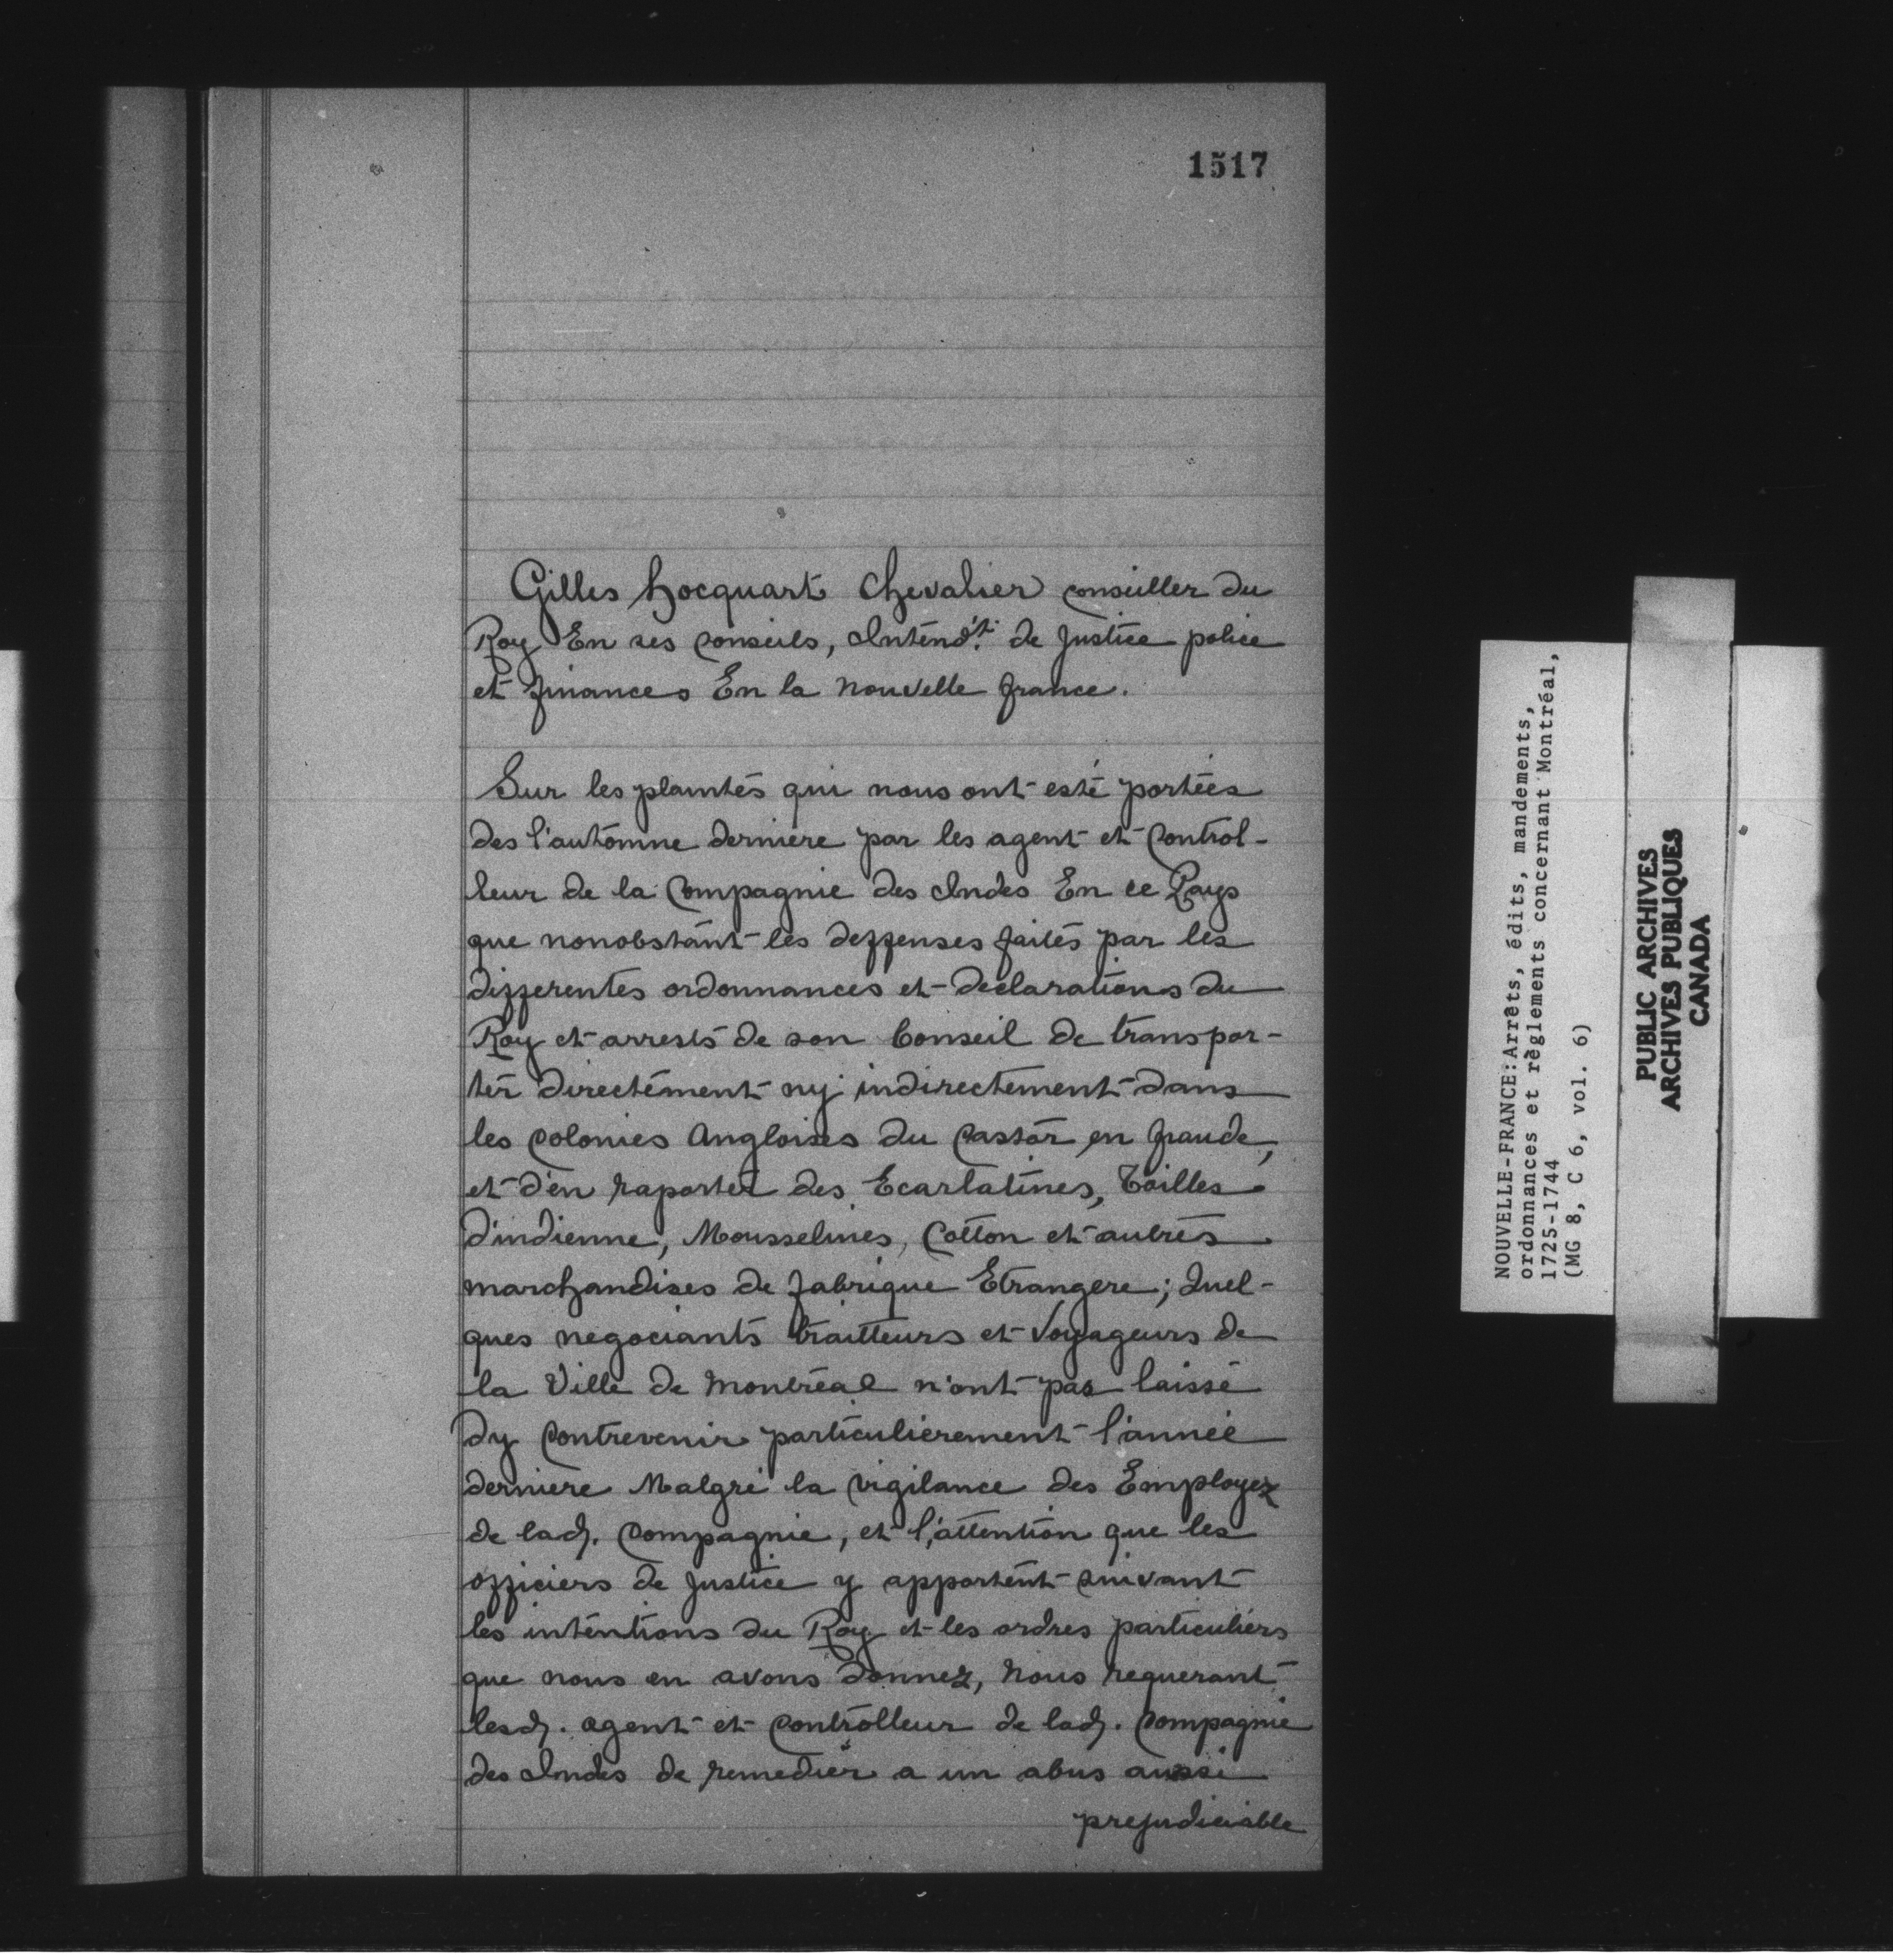 1517
Gilles hocquart Chevalier conseiller du
Roy En ses conseils, Intend.t de Justice police
et finances En la nouvelle france.
Sur les plaintes qui nous ont esté portées
des l'automne derniere par les agent et Control-
leur de la Compagnie des Indes En ce Pays
que nonobstant les deffenses faites par les
differentes ordonnances et declarations du
Roy et arrests de son Conseil de transpor-
ter directement ny indirectement dans
les colonies angloises du castor en fraude,
et d'en raporter des Ecarlatines, Toilles
d'indienne, Mousselines, Cotton et autres
marchandises de fabrique Etrangere; Quel-
ques negociants traitteurs et Voyageurs de
la Ville de montréal n'ont pas laissé
dy contrevenir particulierement l'année
derniere Malgré la vigilance des Employez
de lad. Compagnie, et l'attention que les
officiers de Justice y apportent suivant
les intentions du Roy et les ordres particuliers
que nous en avons donnez, nous requerant
lesd. agent et Controlleur de lad. Compagnie
des Indes de remedier a un abus aussi
prejudiciable
NOUVELLE-FRANCE: Arrêts, édits, mandements,
ordonnances et règlements concernant Montréal,
1725-1744
(MG 8, C 6, vol. 6)
PUBLIC ARCHIVES
ARCHIVES PUBLIQUES
CANADA